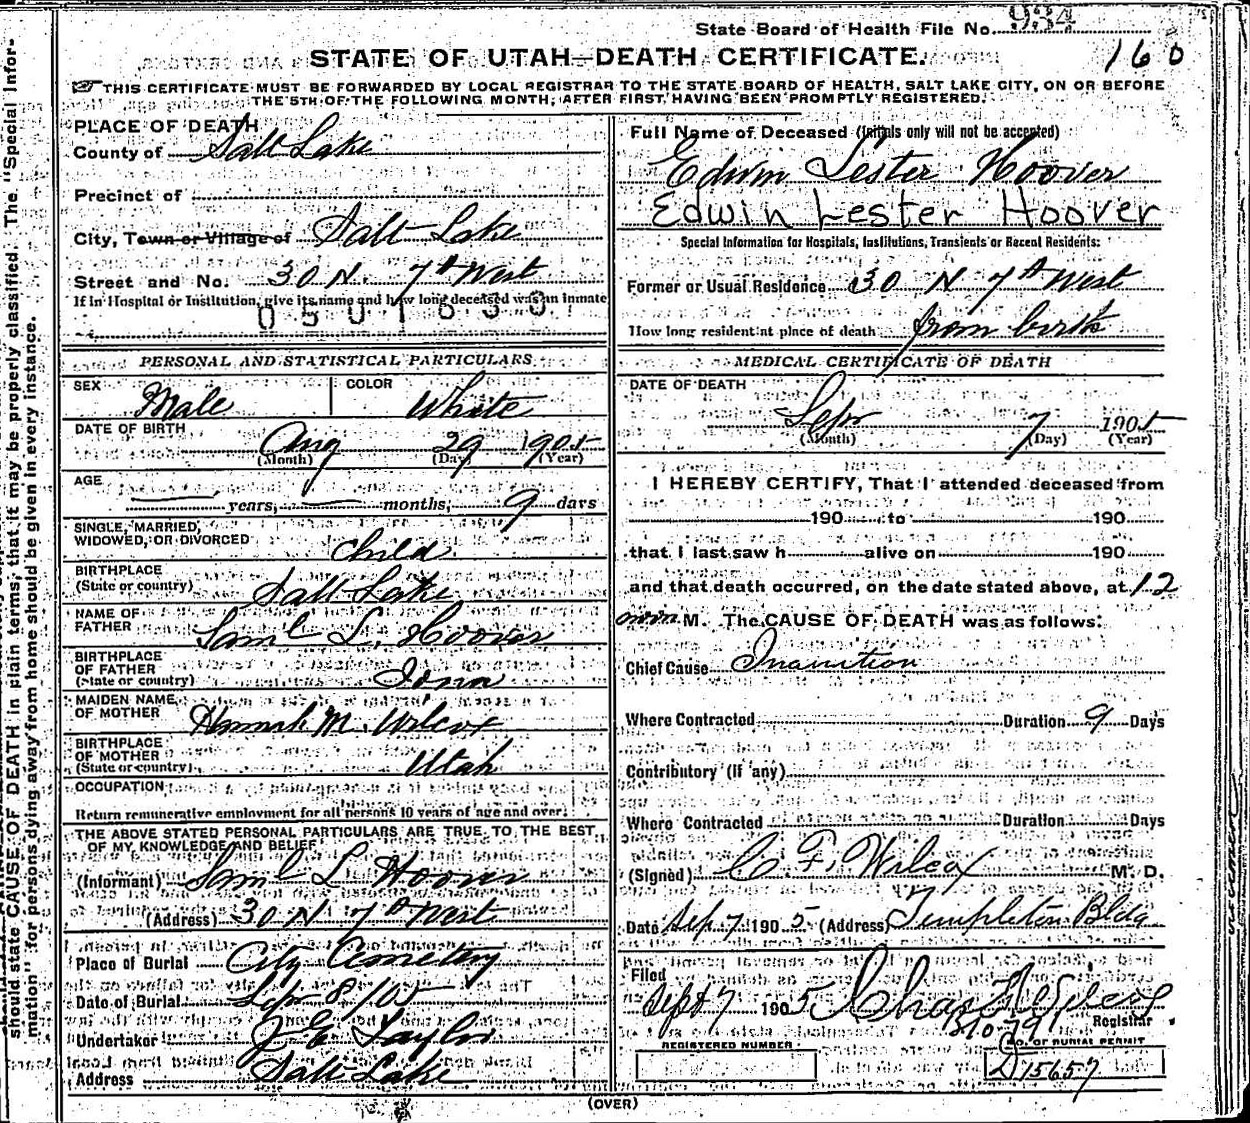 State Board of Health File No. 934
160
STATE OF UTAH—DEATH CERTIFICATE.
THIS CERTIFICATE MUST BE FORWARDED BY LOCAL REGISTRAR TO THE STATE BOARD OF HEALTH, SALT LAKE CITY, ON OR BEFORE
THE 5TH OF THE FOLLOWING MONTH, AFTER FIRST HAVING BEEN PROMPTLY REGISTERED.
should state CAUSE OF DEATH in plain terms, that it may be properly classified. The "Special Infor-
mation" for persons dying away from home should be given in every instance.
PLACE OF DEATH
County of Salt Lake
Precinct of
City, Town or Village of Salt Lake
Street and No. 30 N. 7th West
If in Hospital or Institution, give its name and how long deceased was an inmate
0501630
PERSONAL AND STATISTICAL PARTICULARS
SEX Male COLOR White
DATE OF BIRTH Aug 29 1905
(Month) (Day) (Year)
AGE
years, months, 9 days
SINGLE, MARRIED,
WIDOWED, OR DIVORCED child
BIRTHPLACE
(State or country) Salt Lake
NAME OF
FATHER Saml L. Hoover
BIRTHPLACE
OF FATHER
(State or country) Iowa
MAIDEN NAME
OF MOTHER Hannah M. Wilcox
BIRTHPLACE
OF MOTHER
(State or country) Utah
OCCUPATION
Return remunerative employment for all persons 10 years of age and over.
THE ABOVE STATED PERSONAL PARTICULARS ARE TRUE TO THE BEST
OF MY KNOWLEDGE AND BELIEF
(Informant) Saml L Hoover
(Address) 30 N 7th West
Place of Burial City Cemetery
Date of Burial Sep 8/05
Undertaker J. E. Taylor
Address Salt Lake
Full Name of Deceased (Initials only will not be accepted)
Edwin Lester Hoover
Edwin Lester Hoover
Special Information for Hospitals, Institutions, Transients or Recent Residents:
Former or Usual Residence 30 N 7th West
How long resident at place of death from birth
MEDICAL CERTIFICATE OF DEATH
DATE OF DEATH
Sep 7 1905
(Month) (Day) (Year)
I HEREBY CERTIFY, That I attended deceased from
190 to 190
that I last saw h alive on 190
and that death occurred, on the date stated above, at 12
noon M. The CAUSE OF DEATH was as follows:
Chief Cause Inanition
Where Contracted Duration 9 Days
Contributory (If any)
Where Contracted Duration Days
(Signed) C. F. Wilcox M. D.
Date Sep 7 1905 (Address) Templeton Bldg
Filed
Sept 7 1905 Chas
Registrar
REGISTERED NUMBER
NO. OF BURIAL PERMIT
D15657
(OVER)